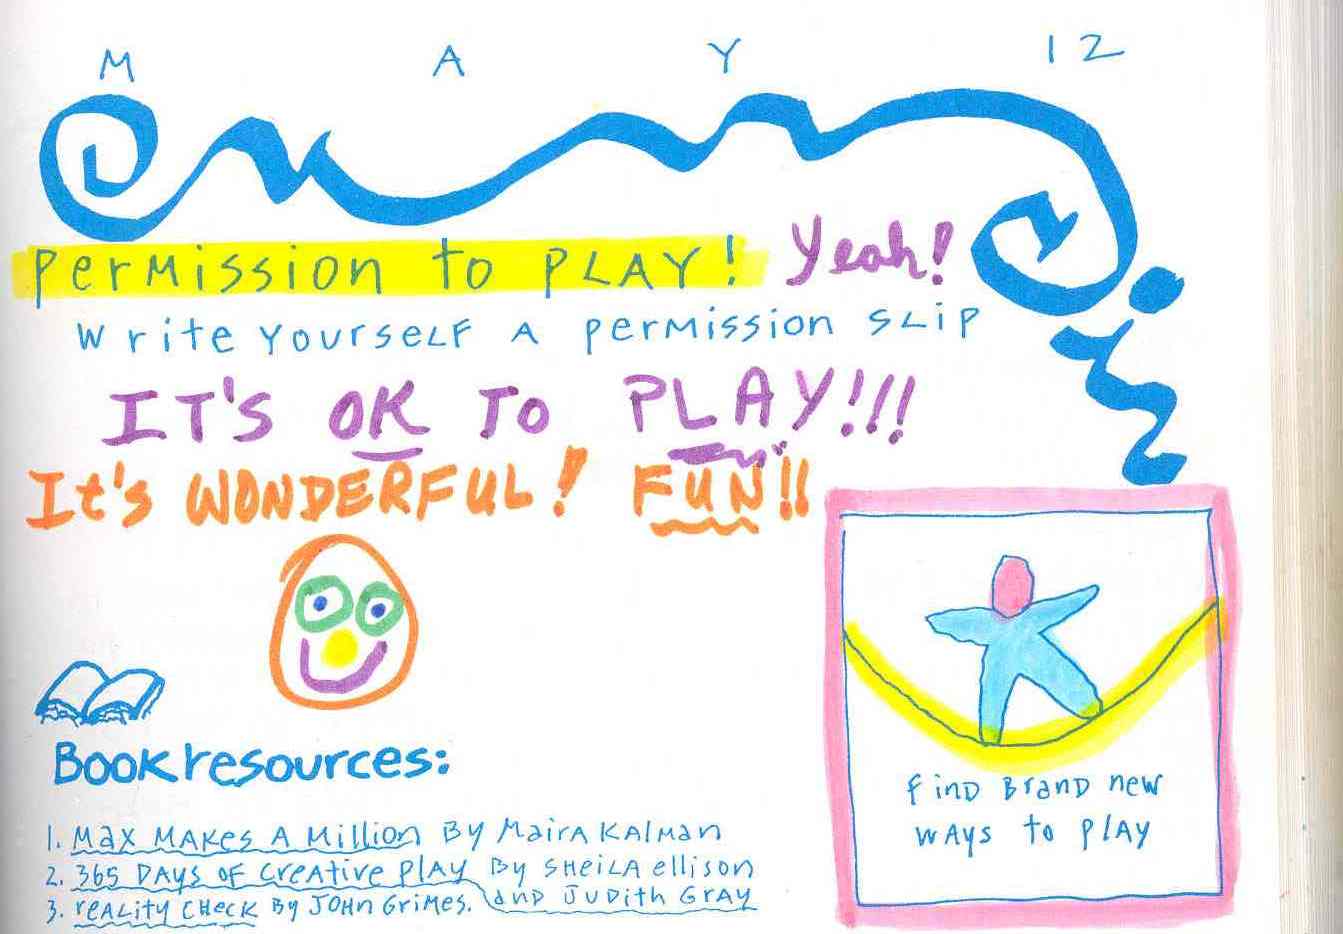 MAY 12
Permission to PLAY! Yeah!
Write Yourself A Permission Slip
IT'S OK TO PLAY!!!
It's WONDERFUL! FUN!!
Book resources:
1. Max Makes A Million By Maira Kalman
2. 365 Days of Creative Play By Sheila Ellison
and Judith Gray
3. Reality Check By John Grimes.
Find Brand new
ways to play